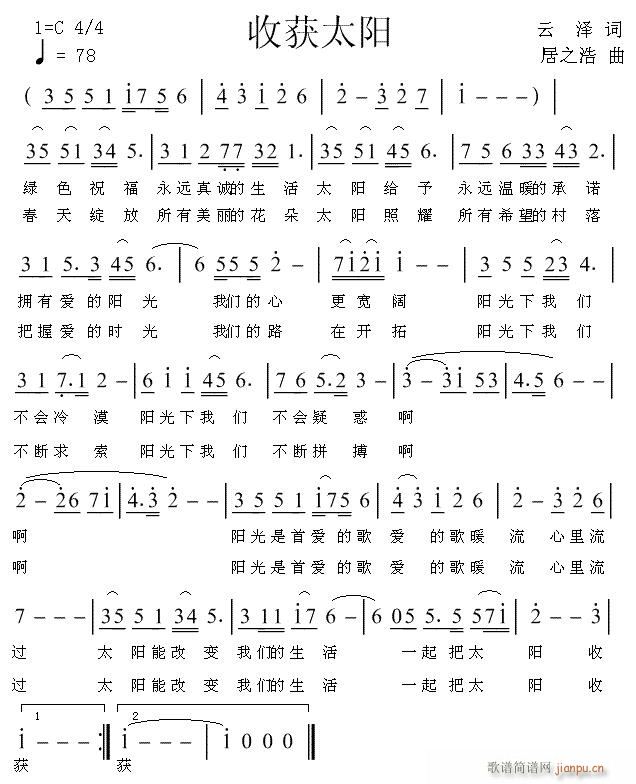 1=C 4/4 收获太阳 云泽 词
♩= 78 居之浩 曲
( 3 5 5 1 i 7 5 6 | 4 3 i 2 6 | 2 - 3 2 7 | i - - - ) |
35 51 34 5. | 3 1 2 77 32 1. | 35 51 45 6. | 7 5 6 33 43 2. |
绿色祝福 永远真诚的生活 太阳给予 永远温暖的承诺
春天绽放 所有美丽的花朵 太阳照耀 所有希望的村落
3 1 5. 3 45 6. | 6 55 5 2 - | 7i2i i - - | 3 5 5 23 4. |
拥有爱的阳光 我们的心 更宽阔 阳光下我们
把握爱的时光 我们的路 在开拓 阳光下我们
3 1 7. 1 2 - | 6 i i 45 6. | 7 6 5. 2 3 - | 3 - 3 i 53 | 4. 5 6 - - |
不会冷漠 阳光下我们 不会疑惑 啊
不断求索 阳光下我们 不断拼搏 啊
2 - 26 7i | 4. 3 2 - - | 3 5 5 1 i75 6 | 4 3 i 2 6 | 2 - 3 2 6 |
啊 阳光是首爱的歌 爱的歌暖流 心里流
啊 阳光是首爱的歌 爱的歌暖流 心里流
7 - - - | 35 5 1 34 5. | 3 11 i7 6 - | 6 05 5. 5 57i | 2 - - 3 |
过 太阳能改变 我们的生活 一起把太阳收
过 太阳能改变 我们的生活 一起把太阳收
1 2
i - - - :| i - - - | i 0 0 0 ||
获 获
歌谱简谱网
jianpu.cn